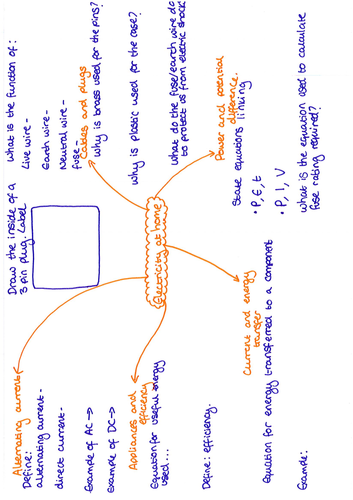 Alternating current
Define:
alternating current-
direct current-
Example of AC →
Example of DC →
Draw the inside of a
3 pin plug. Label
What is the function of:
Live wire -
Earth wire -
Neutral wire -
fuse -
Cables and plugs
Why is brass used for the pins?
Why is plastic used for the case?
What do the fuse/earth wire do
to protect us from electric shock?
Electricity at home
Appliances and
efficiency
Equation for useful energy
used...
Define: efficiency.
Power and potential
difference.
State equations linking
• P, E, t
• P, I, V
What is the equation used to calculate
fuse rating required?
Current and energy
transfer
Equation for energy transferred to a component
Example: